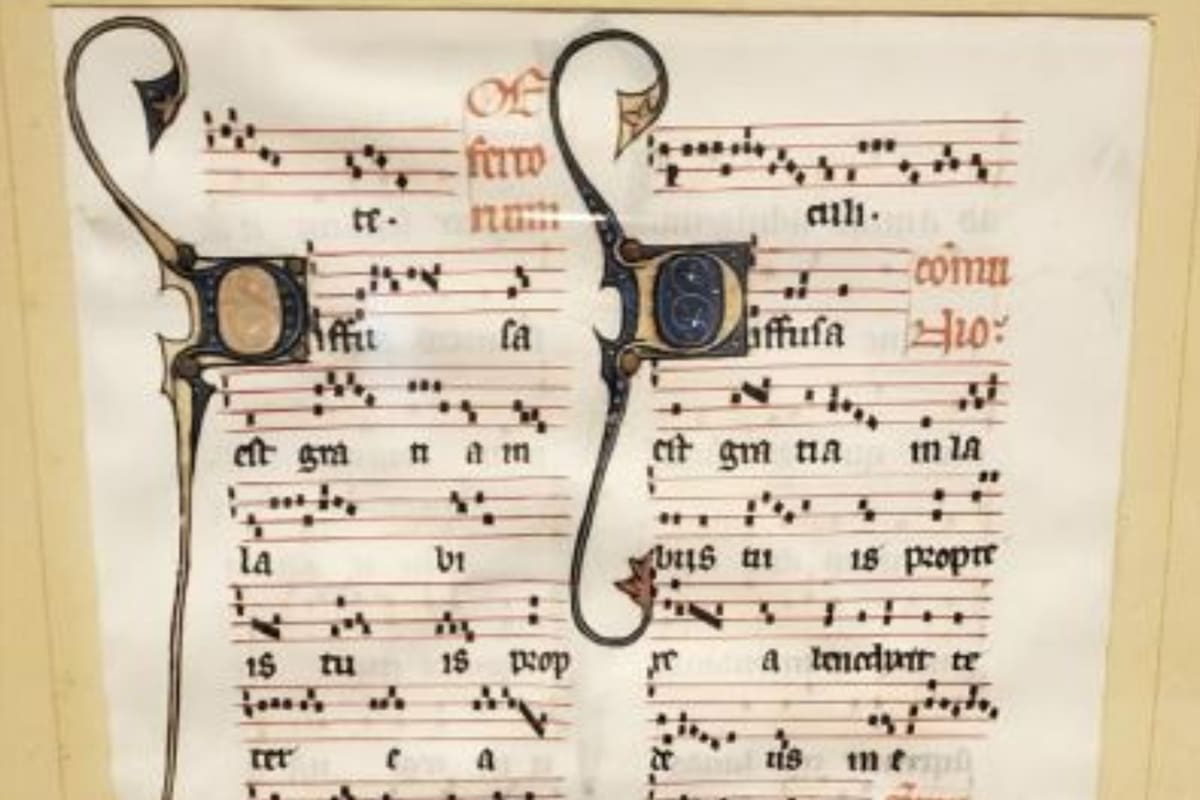 te.
Offerto
rium
Diffu sa
est gra ti a in
la bi
is tu is prop
ter e a
culi.
Diffusa
cōmu
nio:
est gratia in la
biis tu is propte
re a benedixit te
de us in e